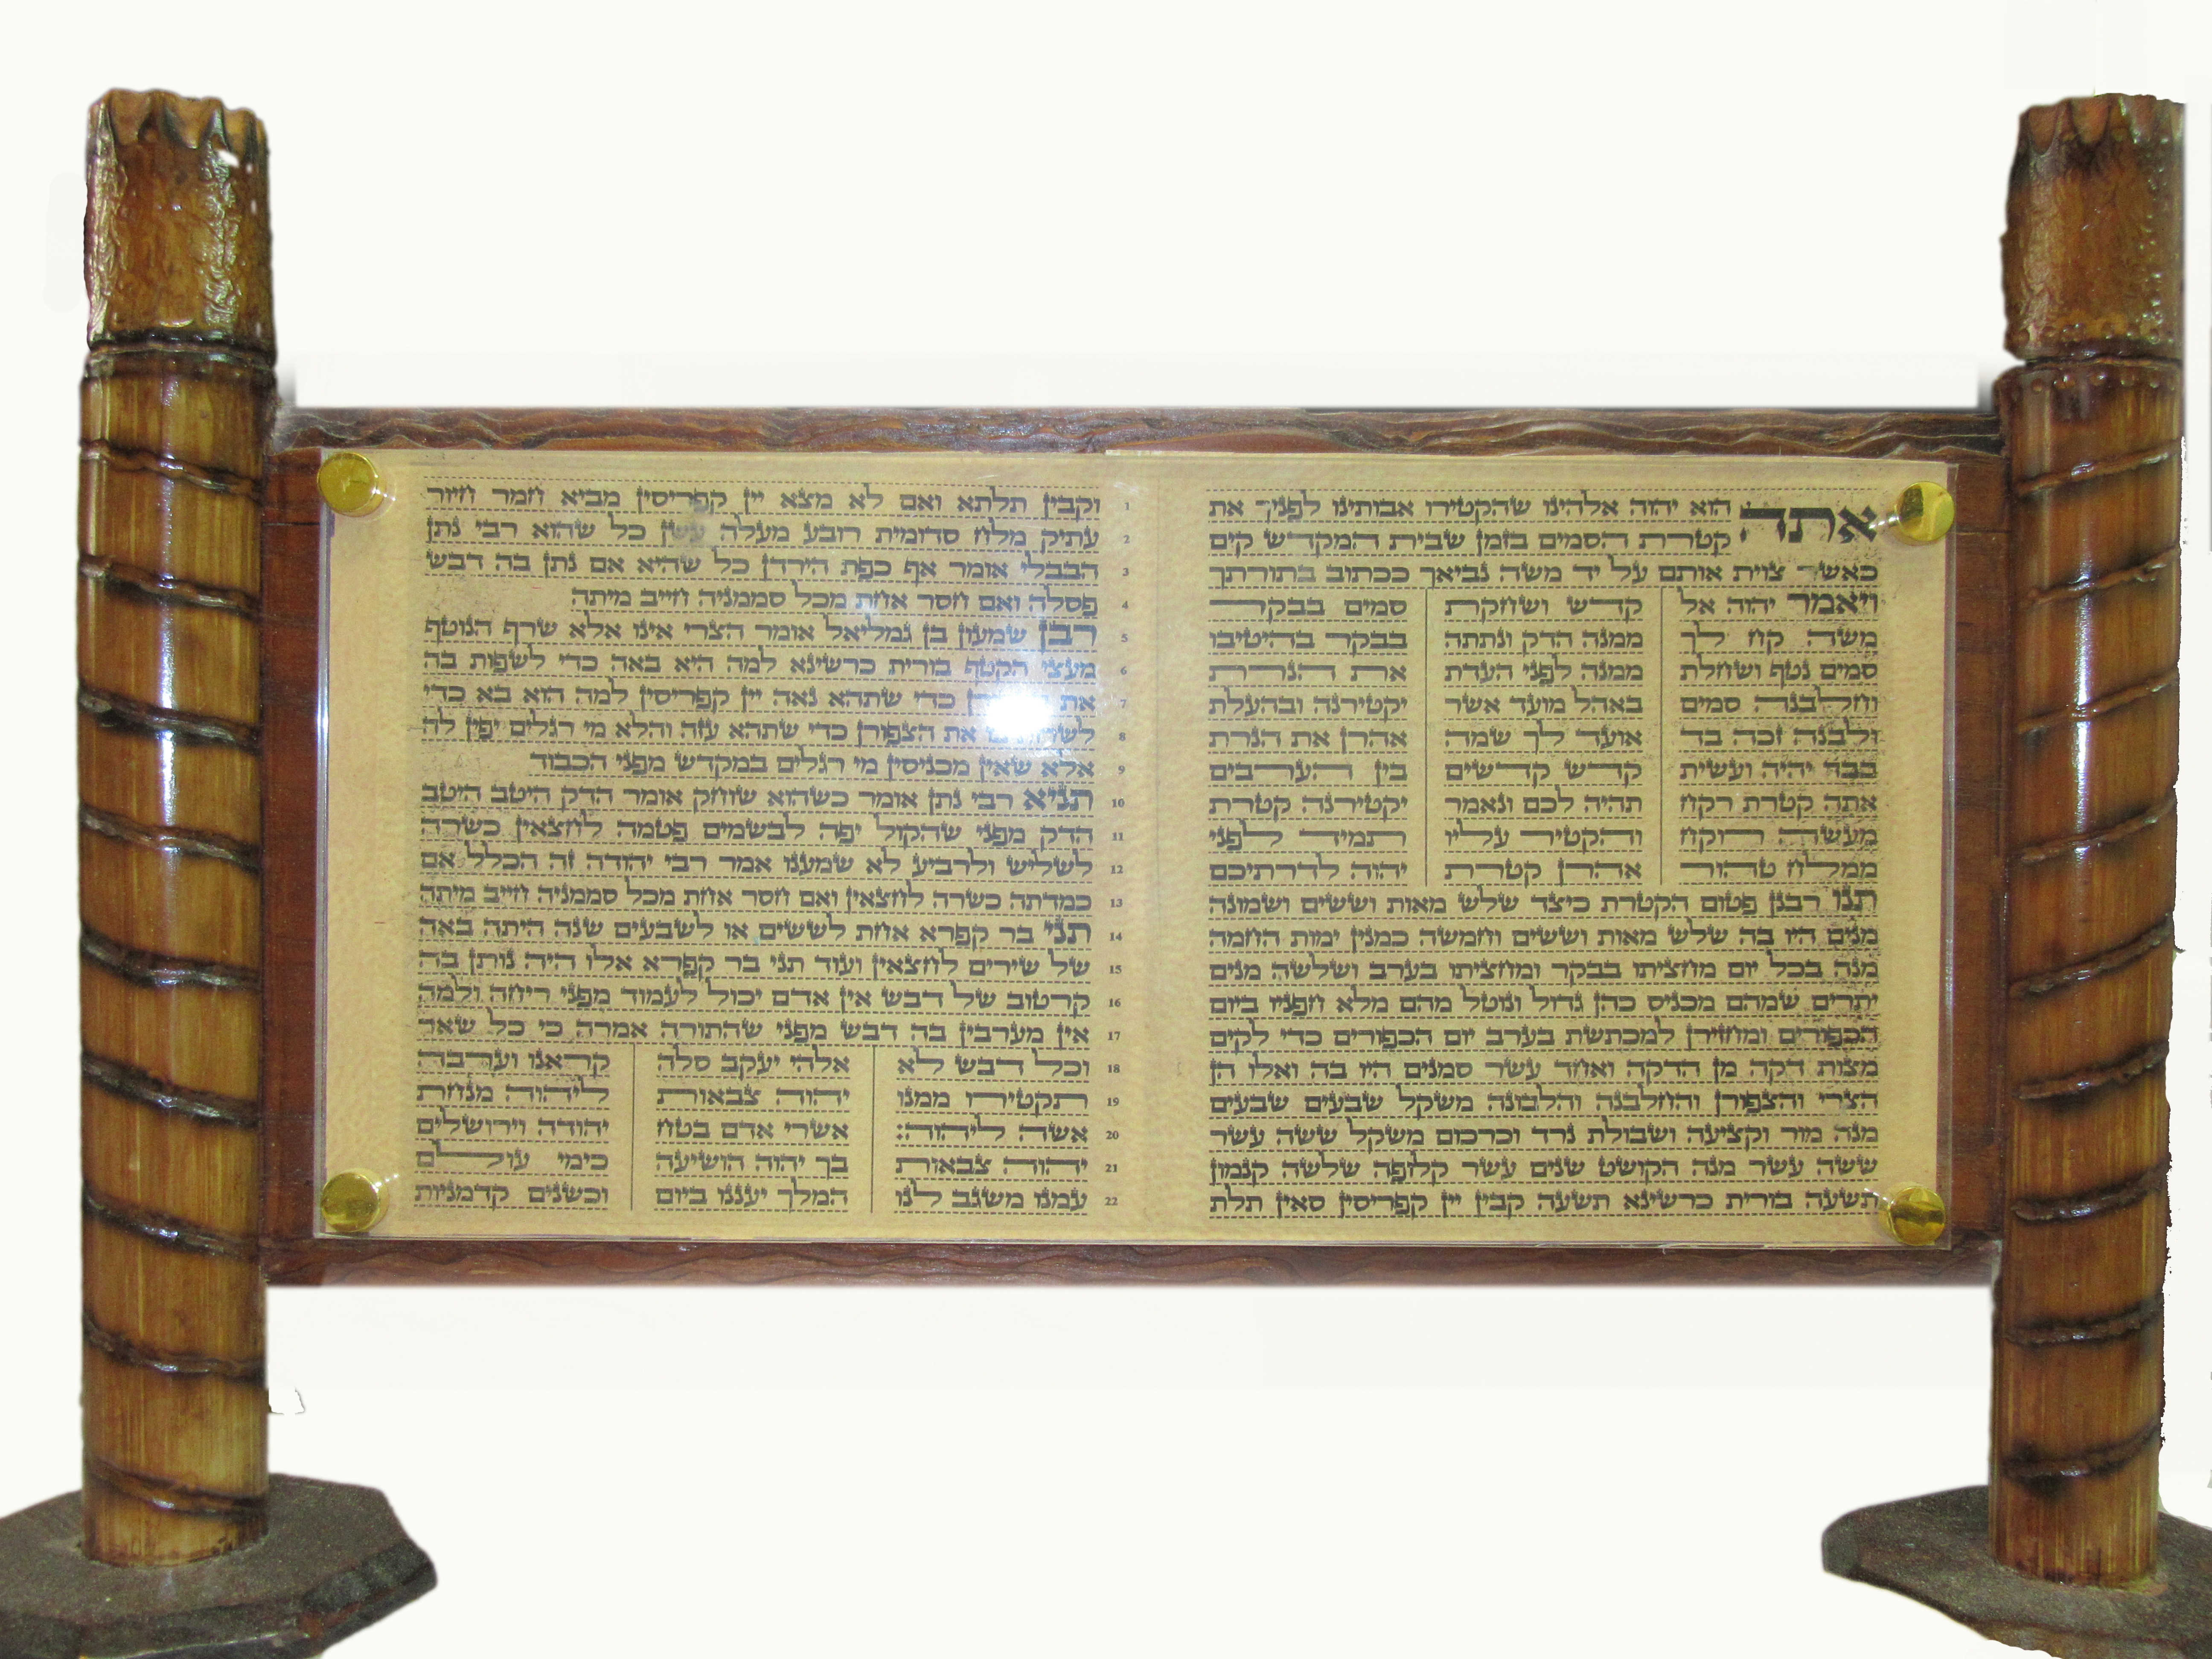 אתה הוא יהוה אלהינו שהקטירו אבותינו לפניך את
קטרת הסמים בזמן שבית המקדש קים
כאשר צוית אותם על יד משה נביאך ככתוב בתורתך
ויאמר יהוה אל
משה קח לך
סמים נטף ושחלת
וחלבנה סמים
ולבנה זכה בד
בבד יהיה ועשית
אתה קטרת רקח
מעשה רוקח
ממלח טהור
קדש ושחקת
ממנה הדק ונתתה
ממנה לפני העדת
באהל מועד אשר
אועד לך שמה
קדש קדשים
תהיה לכם ונאמר
והקטיר עליו
אהרן קטרת
סמים בבקר
בבקר בהיטיבו
את הנרת
יקטירנה ובהעלת
אהרן את הנרת
בין הערבים
יקטירנה קטרת
תמיד לפני
יהוה לדרתיכם
תנו רבנן פטום הקטרת כיצד שלש מאות וששים ושמונה
מנים היו בה שלש מאות וששים וחמשה כמנין ימות החמה
מנה בכל יום מחציתו בבקר ומחציתו בערב ושלשה מנים
יתרים שמהם מכניס כהן גדול ונוטל מהם מלא חפניו ביום
הכפורים ומחזירן למכתשת בערב יום הכפורים כדי לקים
מצות דקה מן הדקה ואחד עשר סמנים היו בה ואלו הן
הצרי והצפורן והחלבנה והלבונה משקל שבעים שבעים
מנה מור וקציעה ושבולת נרד וכרכום משקל ששה עשר
ששה עשר מנה הקושט שנים עשר קלופה שלשה קנמון
תשעה בורית כרשינא תשעה קבין יין קפריסין סאין תלת
1 וקבין תלתא ואם לא מצא יין קפריסין מביא חמר חיור
2 עתיק מלח סדומית רובע מעלה עשן כל שהוא רבי נתן
3 הבבלי אומר אף כפת הירדן כל שהיא אם נתן בה דבש
4 פסלה ואם חסר אחת מכל סממניה חייב מיתה
5 רבן שמעון בן גמליאל אומר הצרי אינו אלא שרף הנוטף
6 מעצי הקטף בורית כרשינא למה היא באה כדי לשפות בה
7 את כדי שתהא נאה יין קפריסין למה הוא בא כדי
8 את הצפורן כדי שתהא עזה והלא מי רגלים יפין לה
9 אלא שאין מכניסין מי רגלים במקדש מפני הכבוד
10 תניא רבי נתן אומר כשהוא שוחק אומר הדק היטב היטב
11 הדק מפני שהקול יפה לבשמים פטמה לחצאין כשרה
12 לשליש ולרביע לא שמענו אמר רבי יהודה זה הכלל אם
13 כמדתה כשרה לחצאין ואם חסר אחת מכל סממניה חייב מיתה
14 תני בר קפרא אחת לששים או לשבעים שנה היתה באה
15 של שירים לחצאין ועוד תני בר קפרא אלו היה נותן בה
16 קרטוב של דבש אין אדם יכול לעמוד מפני ריחה ולמה
17 אין מערבין בה דבש מפני שהתורה אמרה כי כל שאר
18 וכל דבש לא
19 תקטירו ממנו
20 אשה ליהוה:
21 יהוה צבאות
22 עמנו משגב לנו
אלהי יעקב סלה
יהוה צבאות
אשרי אדם בטח
בך יהוה הושיעה
המלך יעננו ביום
קראנו וערבה
ליהוה מנחת
יהודה וירושלים
כימי עולם
וכשנים קדמניות